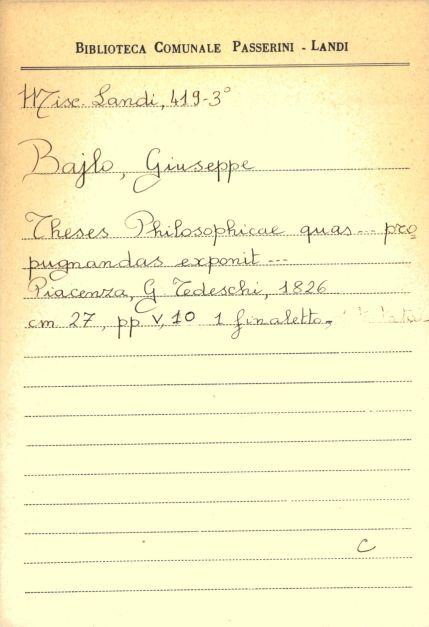 BIBLIOTECA COMUNALE PASSERINI - LANDI
Misc. Landi, 419-3°
Bajlo, Giuseppe
Theses Philosophicae quas --- pro
pugnandas exponit ---
Piacenza, G. Tedeschi, 1826
cm 27, pp V, 10 1 finaletto.
C